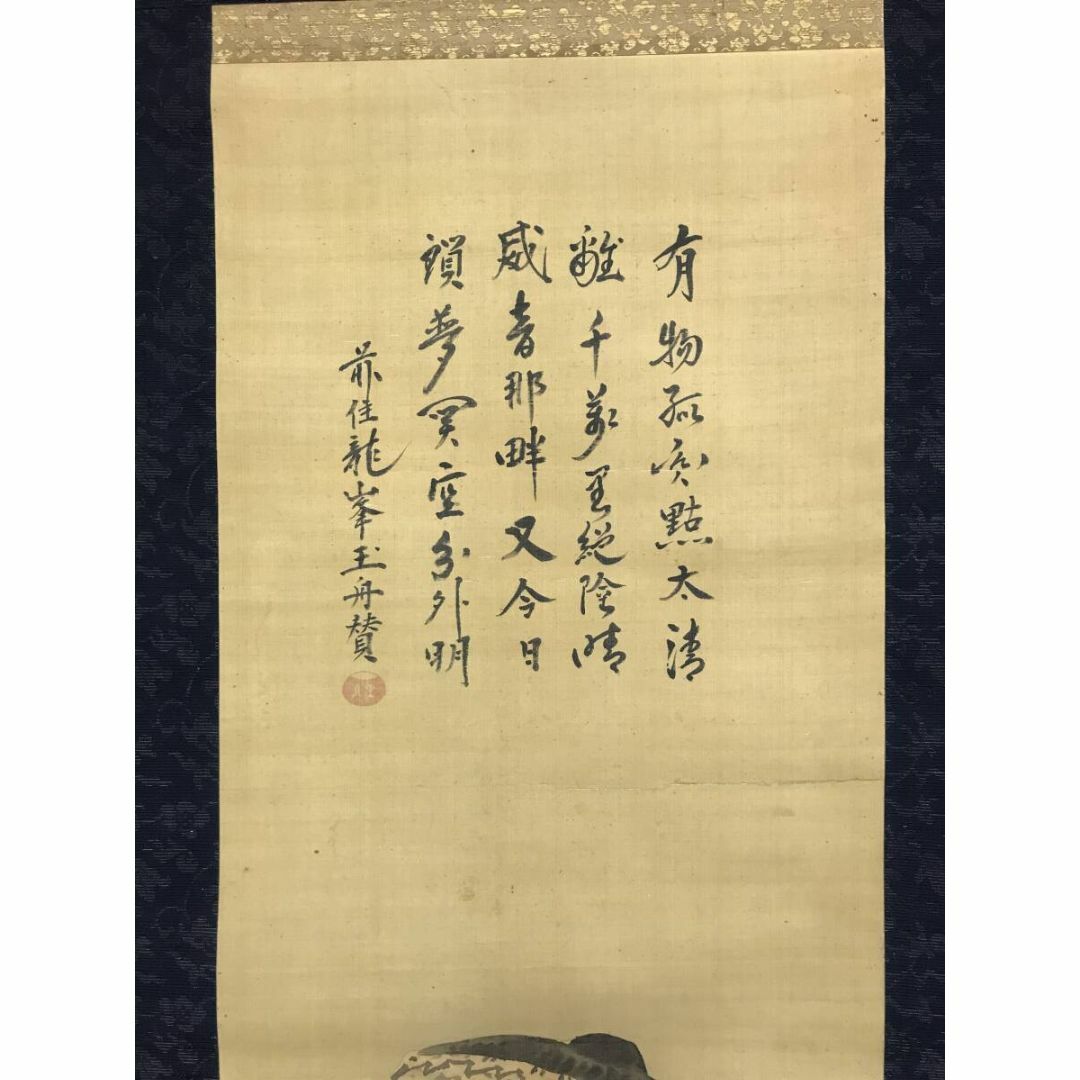 有物孤點太清
離千萬里絶陰晴
威音那畔又今日
鎖夢関空分外明
前住龍峯玉舟賛